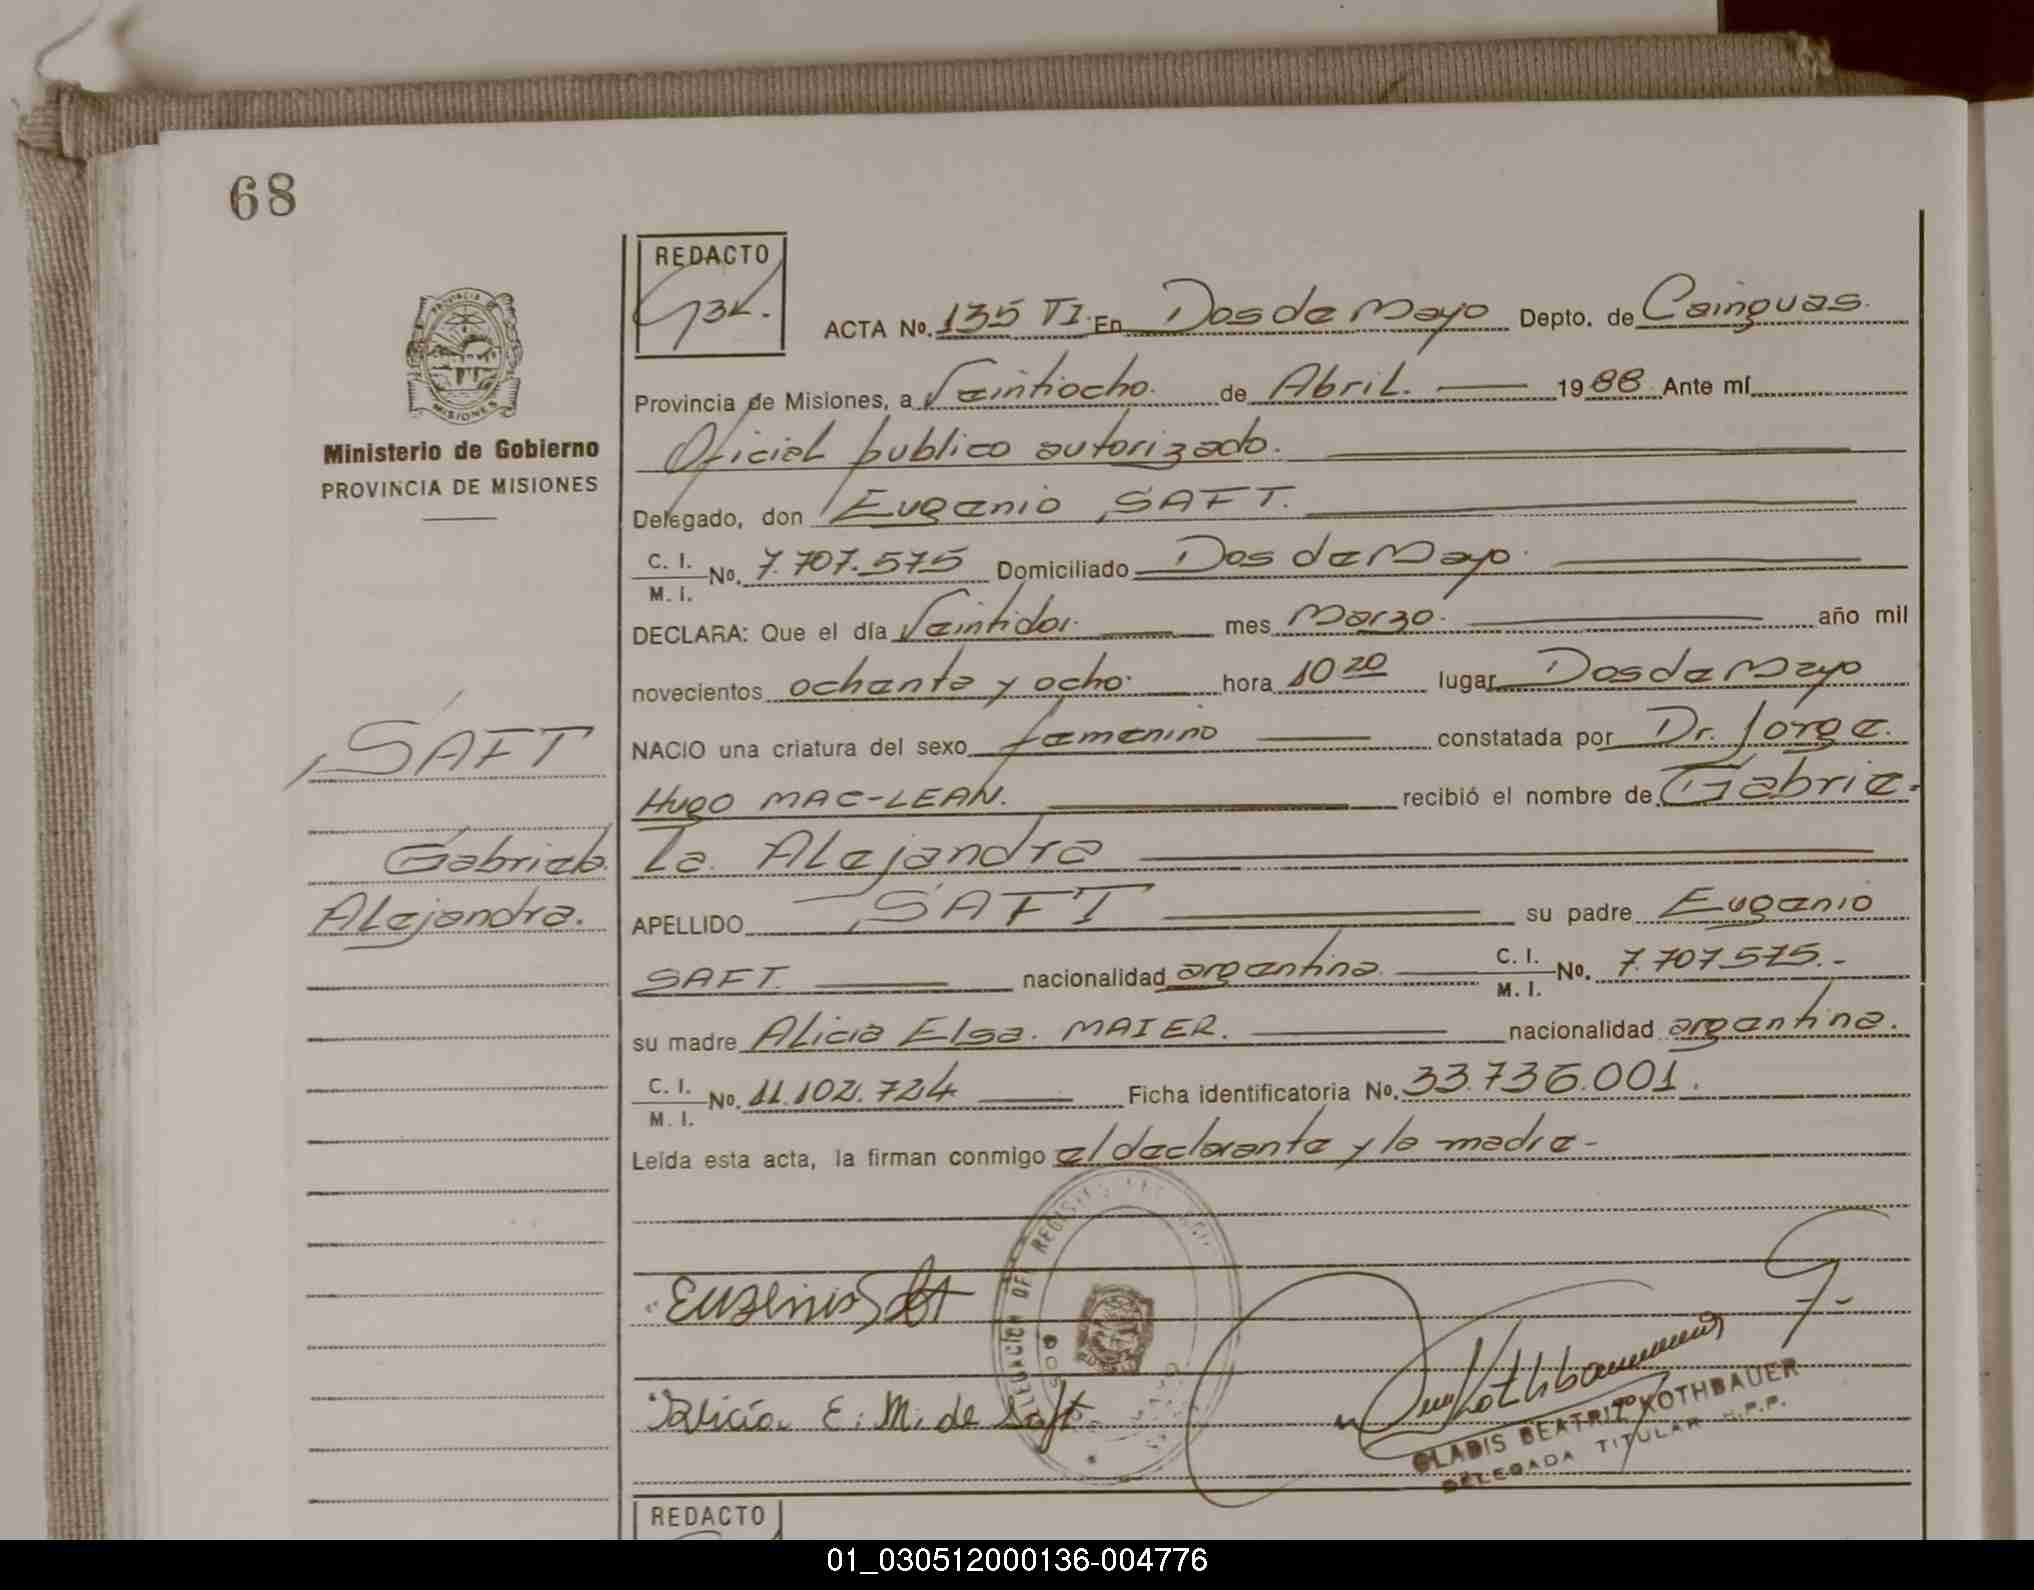 68
REDACTO
ACTA No. 135 TI. En Dos de Mayo Depto. de Cainguas.
Provincia de Misiones, a Veintiocho. de Abril. 1988. Ante mí
Oficial publico autorizado.
Delegado, don Eugenio SAFT.
C. I. / M. I. No. 7.707.575 Domiciliado Dos de Mayo.
DECLARA: Que el día Veintidos. mes Marzo. año mil
novecientos ochenta y ocho. hora 10 20 lugar Dos de Mayo
NACIO una criatura del sexo femenino constatada por Dr. Jorge.
Hugo MAC-LEAN. recibió el nombre de Gabrie-
la. Alejandra
APELLIDO SAFT su padre Eugenio
SAFT. nacionalidad argentina. C. I. / M. I. No. 7.707.575.-
su madre Alicia Elsa. MAIER. nacionalidad argentina.
C. I. / M. I. No. 11.102.724 Ficha identificatoria No. 33.736.001.
Leída esta acta, la firman conmigo el declarante y la madre-
PROVINCIA DE
MISIONES
Ministerio de Gobierno
PROVINCIA DE MISIONES
SAFT
Gabriela.
Alejandra.
Eugenio Saft
Alicia E. M. de Saft
DELEGACION DEL REGISTRO
DOS
Kothbauer
GLADIS BEATRIZ KOTHBAUER
DELEGADA TITULAR R.P.P.
REDACTO
01_030512000136-004776